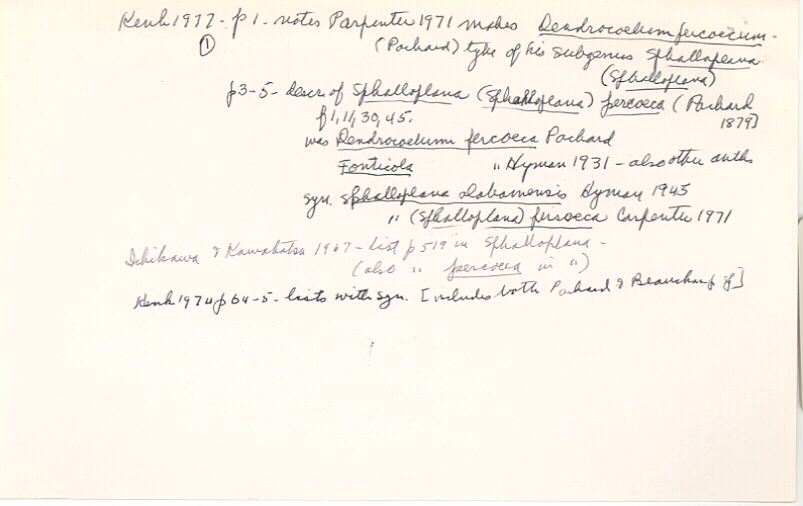 Kenk 1977 - p 1 - notes Carpenter 1971 makes Dendrocoelum percoecum -
① (Packard) type of his subgenus Sphalloplana
(Sphalloplana)
p3-5 - descr of Sphalloplana (Sphalloplana) percoeca (Packard
f 1, 11, 30, 45. 1879]
was Dendrocoelum percoeca Packard
Fonticola " Hyman 1931 - also other auths
syn. Sphalloplana alabamensis Hyman 1945
" (Sphalloplana) percoeca Carpenter 1971
Ichikawa & Kawakatsu 1967 - list p 519 in Sphalloplana -
(also " percoeca in ")
Kenk 1974 p 64-5 - lists with syn. [includes both Packard & Beauchamp sp]